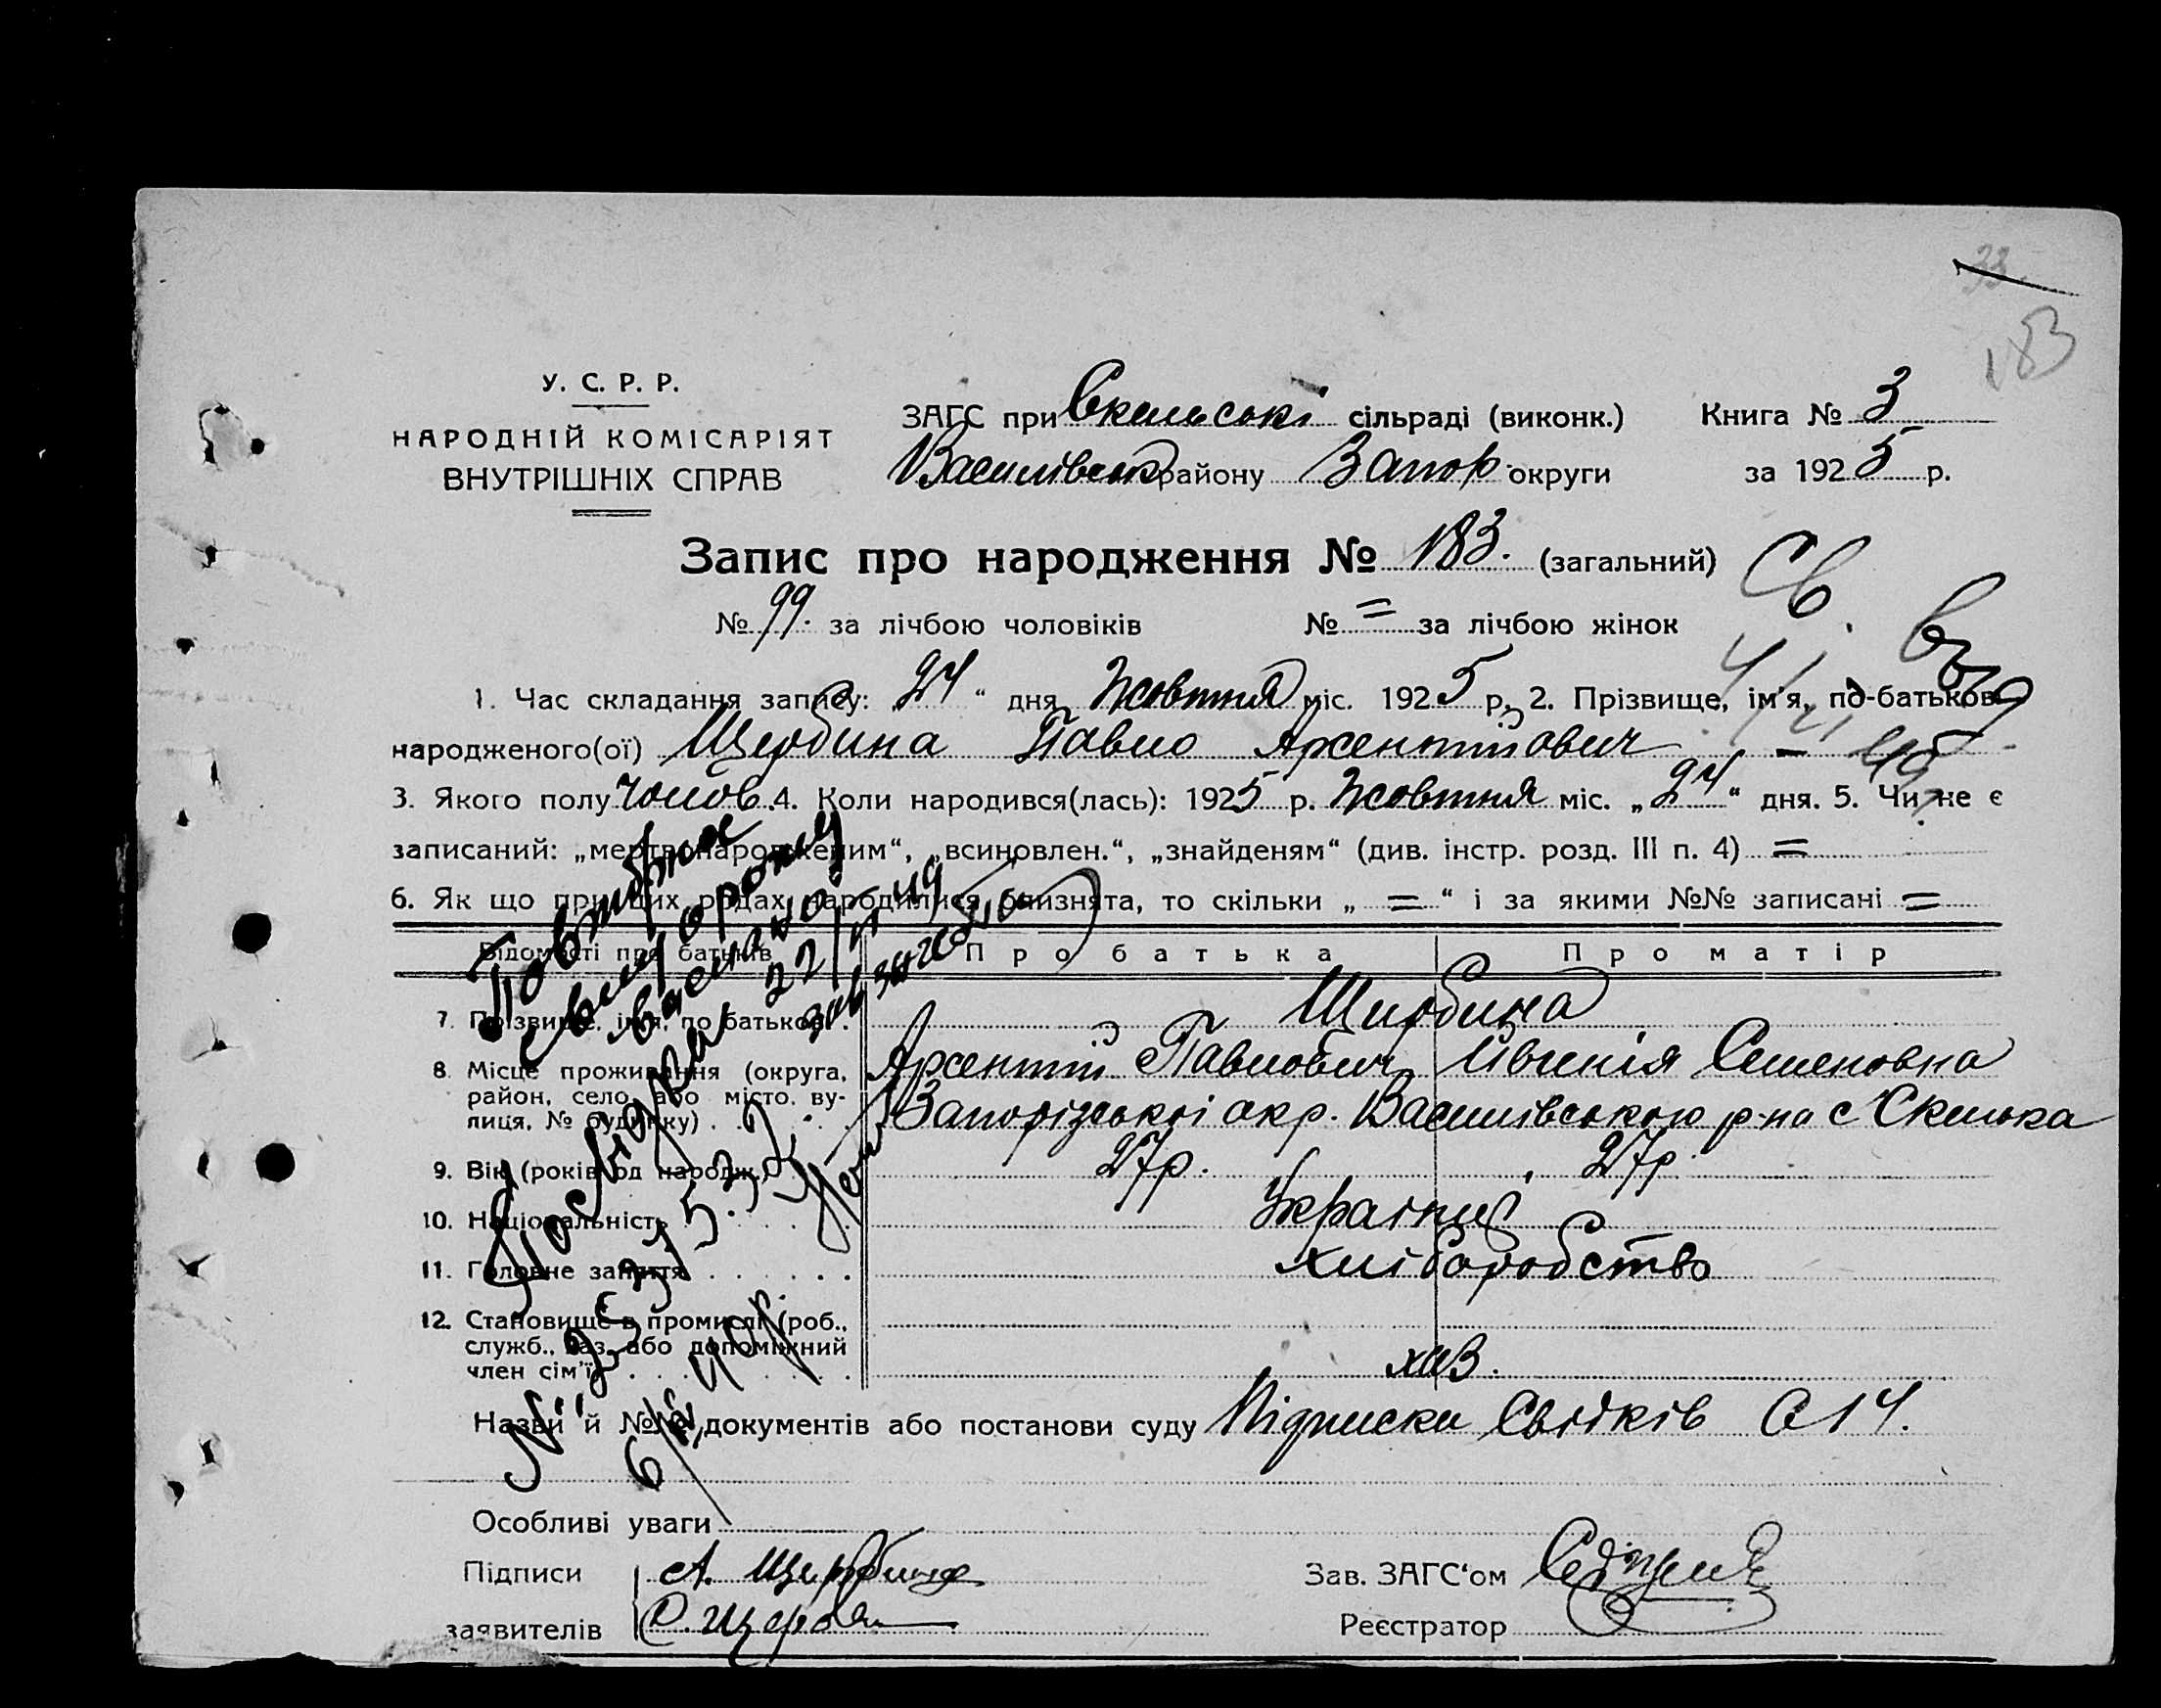 33
183
У. С. Р. Р.
НАРОДНІЙ КОМІСАРІЯТ
ВНУТРІШНІХ СПРАВ
ЗАГС при Скельські сільраді (виконк.) Книга № 3
Василівськ району Запор. округи за 1925 р.
Запис про народження № 183. (загальний)
№ 99. за лічбою чоловіків № = за лічбою жінок
Св.
1. Час складання запису: 24 “ дня Жовтня міс. 1925 р. 2. Прізвище, ім'я, по-батькові
народженого(ої) Щербина Павло Арсентійович
3. Якого полу Чолов. 4. Коли народився(лась): 1925 р. Жовтня міс. „ 24 “ дня. 5. Чи не є
записаний: „мертвонародженим“, „всиновлен.“, „знайденям“ (див. інстр. розд. III п. 4) =
6. Як що при цих родах народилися близнята, то скільки „ = “ і за якими №№ записані =
Відомості про батьків Про батька Про матір
7. Прізвище, ім'я, по батькові . Щирбина
Арсентій Павлович Івгенія Семеновна
8. Місце проживання (округа,
район, село або місто, ву-
лиця, № будинку) . . . . Запорізської окр. Василівського р-на с Скелька
9. Вік (років од народж.) 27р. 27р.
10. Національність . . . . . Українці
11. Головне заняття . . . . . . хліборобство
12. Становище в промислі (роб.,
служб., хаз. або допоміжний
член сім'ї) . . . . . . . хаз.
Назви й №№ документів або постанови суду Підписка Свідків С 14.
Особливі уваги
Підписи А. Щирбина
заявителів С. Щерба
Зав. ЗАГС‘ом
Реєстратор
Повторное
22/II 49